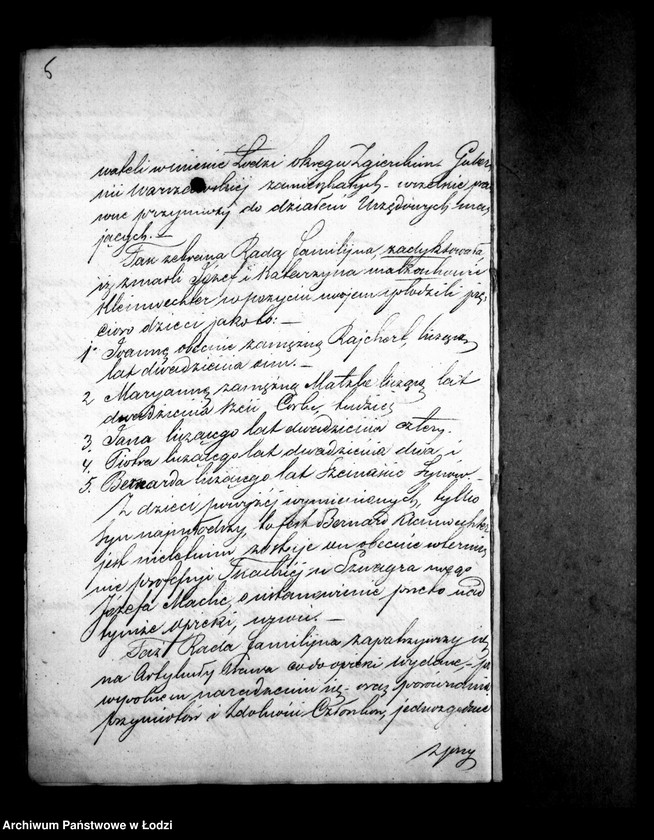 5
wateli w mieście Łodzi okręgu Zgierskim Guber
nii Warszawskiej zamieszkałych – wszelkie pra
wne przymioty do działań Urzędowych ma
jących. –
Tak zebrana Rada familijna, zadyktowała,
iż zmarli Józef i Katarzyna małżonkowie
Kleinwechter w pożyciu swojem spłodzili pię,
cioro dzieci jako to: –
1. Joannę obecnie zamężną Rajchert, liczącą
lat dwadzieścia osm. –
2. Maryannę zamężną Matzke liczącą lat
dwadzieścia sześć, Córki, tudzież
3. Jana liczącego lat dwadzieścia cztery.
4. Piotra liczącego lat dwadzieścia dwa i
5. Bernarda liczącego lat szesnaście Synów –
Z dzieci powyżej wymienionych, tylko
syn najmłodszy, to jest Bernard Kleinwechter
jest nieletnim, zostaje on obecnie w termi,
nie professyi Tkackiej u Szwagra swego
Józefa, o ustanowienie przeto nad
tymże opieki, wnosi. –
Taż Rada familijna zapatrzywszy się
na Artykuły Prawa co do opieki wydane, – po
wspólnem naradzeniu się – oraz porównaniu
przymiotów i zdolności Członków, jednozgodnie
z przy
Archiwum Państwowe w Łodzi